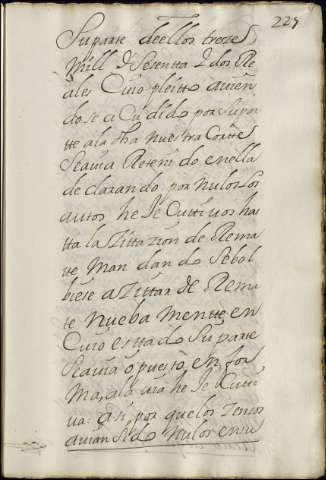 227
Su parte deellos trezes
mill Y Setentta Y dos Re
ales Cuio pleitto avien
dose a Cudido por su par
tte ala dha nuestra Cortte
Seavia Retenido enella
de clarando por nulos los
autos he Je Cutti vos has
tta la Zitta zion de Rema
tte Man dan do Sebol
biese a Zittar de Rema
te nueba Mentte en
Cuio estado Su parte
Seavia opuesto, en for
Ma, ala via he Je Cutti
va: asi por que los Zensos
avian Sido nulos ensu